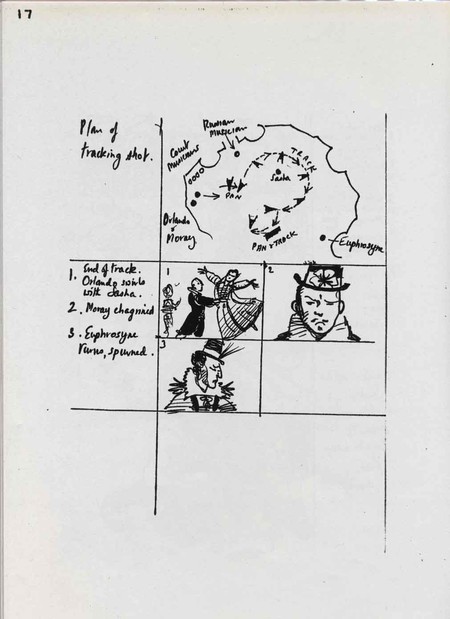 17
Plan of
tracking shot.
Russian
musician
Court
musicians
TRACK
Sasha
PAN
Orlando
&
Moray
PAN & TRACK
Euphrosyne
1. End of track.
Orlando swirls
with Sasha.
2. Moray chagrined
3. Euphrosyne
turns, spurned.
1
2
3